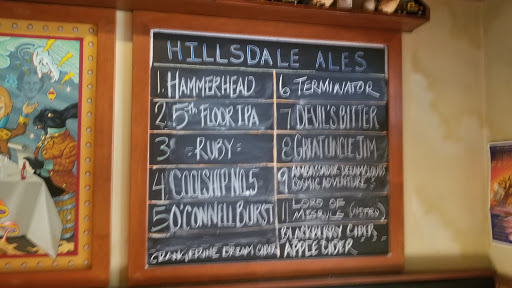 HILLSDALE ALES
1. HAMMERHEAD
2. 5th FLOOR IPA
3 =RUBY=
4 COOLSHIP NO.5
5 O'CONNELL BURST
6 TERMINATOR
7 DEVIL'S BITTER
8 GREAT UNCLE JIM
9 AMBASSADOR DREAMCLOUD'S
COSMIC ADVENTURE
11 LORD OF
MISRULE (NITRO)
BLACKBERRY CIDER,
APPLE CIDER
DREAM CIDER